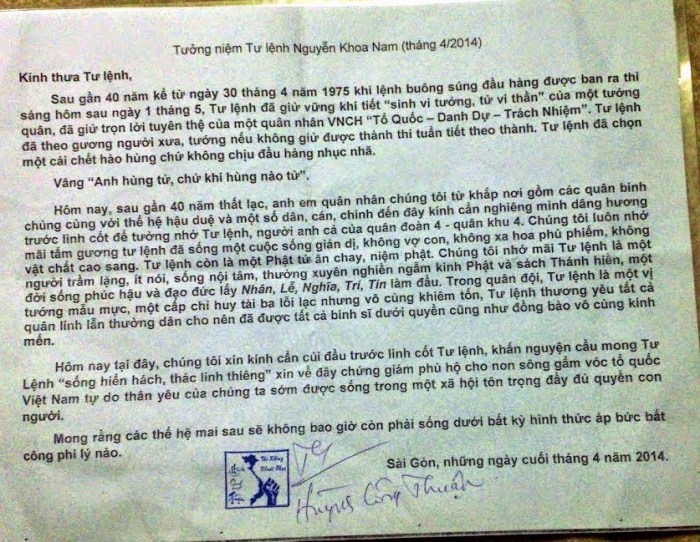 Tưởng niệm Tư lệnh Nguyễn Khoa Nam (tháng 4/2014)
Kính thưa Tư lệnh,
Sau gần 40 năm kể từ ngày 30 tháng 4 năm 1975 khi lệnh buông súng đầu hàng được ban ra thì
sáng hôm sau ngày 1 tháng 5, Tư lệnh đã giử vững khí tiết "sinh vi tướng, tử vi thần" của một tướng
quân, đã giử trọn lời tuyên thệ của một quân nhân VNCH "Tổ Quốc – Danh Dự – Trách Nhiệm". Tư lệnh
đã theo gương người xưa, tướng nếu không giử được thành thì tuẫn tiết theo thành. Tư lệnh đã chọn
một cái chết hào hùng chứ không chịu đầu hàng nhục nhã.
Vâng "Anh hùng tử, chứ khí hùng nào tử".
Hôm nay, sau gần 40 năm thất lạc, anh em quân nhân chúng tôi từ khắp nơi gồm các quân binh
chủng cùng với thế hệ hậu duệ và một số dân, cán, chính đến đây kính cẩn nghiêng mình dâng hương
trước linh cốt để tưởng nhớ Tư lệnh, người anh cả của quân đoàn 4 - quân khu 4. Chúng tôi luôn nhớ
mãi tấm gương tư lệnh đã sống một cuộc sống giản dị, không vợ con, không xa hoa phù phiếm, không
vật chất cao sang. Tư lệnh còn là một Phật tử ăn chay, niệm phật. Chúng tôi nhớ mãi Tư lệnh là một
người trầm lặng, ít nói, sống nội tâm, thường xuyên nghiền ngẫm kinh Phật và sách Thánh hiền, một
đời sống phúc hậu và đạo đức lấy Nhân, Lễ, Nghĩa, Trí, Tín làm đầu. Trong quân đội, Tư lệnh là một vị
tướng mẫu mực, một cấp chỉ huy tài ba lỗi lạc nhưng vô cùng khiêm tốn, Tư lệnh thương yêu tất cả
quân lính lẫn thường dân cho nên đã được tất cả binh sĩ dưới quyền cũng như đồng bào vô cùng kính
mến.
Hôm nay tại đây, chúng tôi xin kính cẩn cúi đầu trước linh cốt Tư lệnh, khấn nguyện cầu mong Tư
Lệnh "sống hiển hách, thác linh thiêng" xin về đây chứng giám phù hộ cho non sông gấm vóc tổ quốc
Việt Nam tự do thân yêu của chúng ta sớm được sống trong một xã hội tôn trọng đầy đủ quyền con
người.
Mong rằng các thế hệ mai sau sẽ không bao giờ còn phải sống dưới bất kỳ hình thức áp bức bất
công phi lý nào.
Sài Gòn, những ngày cuối tháng 4 năm 2014.
Huỳnh Công Thuận